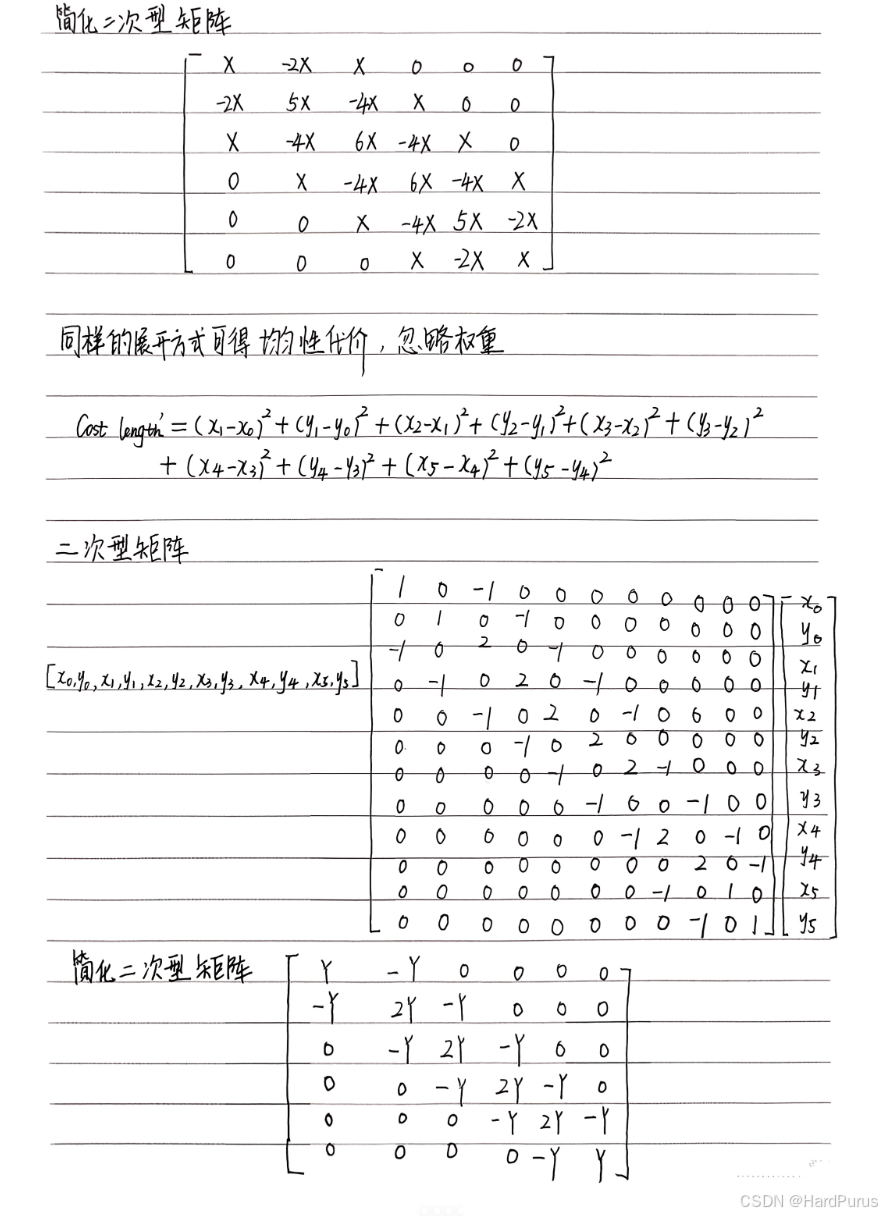 简化二次型矩阵
X -2X X 0 0 0
-2X 5X -4X X 0 0
X -4X 6X -4X X 0
0 X -4X 6X -4X X
0 0 X -4X 5X -2X
0 0 0 X -2X X
同样的展开方式可得均匀性代价，忽略权重
Cost length' = (x₁-x₀)² + (y₁-y₀)² + (x₂-x₁)² + (y₂-y₁)² + (x₃-x₂)² + (y₃-y₂)²
+ (x₄-x₃)² + (y₄-y₃)² + (x₅-x₄)² + (y₅-y₄)²
二次型矩阵
[x₀,y₀,x₁,y₁,x₂,y₂,x₃,y₃,x₄,y₄,x₅,y₅]
1 0 -1 0 0 0 0 0 0 0 0 x₀
0 1 0 -1 0 0 0 0 0 0 0 y₀
-1 0 2 0 -1 0 0 0 0 0 0 x₁
0 -1 0 2 0 -1 0 0 0 0 0 y₁
0 0 -1 0 2 0 -1 0 0 0 0 x₂
0 0 0 -1 0 2 0 0 0 0 0 y₂
0 0 0 0 -1 0 2 -1 0 0 0 x₃
0 0 0 0 0 -1 0 0 -1 0 0 y₃
0 0 0 0 0 0 -1 2 0 -1 0 x₄
0 0 0 0 0 0 0 0 2 0 -1 y₄
0 0 0 0 0 0 0 -1 0 1 0 x₅
0 0 0 0 0 0 0 0 -1 0 1 y₅
简化二次型矩阵
Y -Y 0 0 0 0
-Y 2Y -Y 0 0 0
0 -Y 2Y -Y 0 0
0 0 -Y 2Y -Y 0
0 0 0 -Y 2Y -Y
0 0 0 0 -Y Y
CSDN @HardPurus